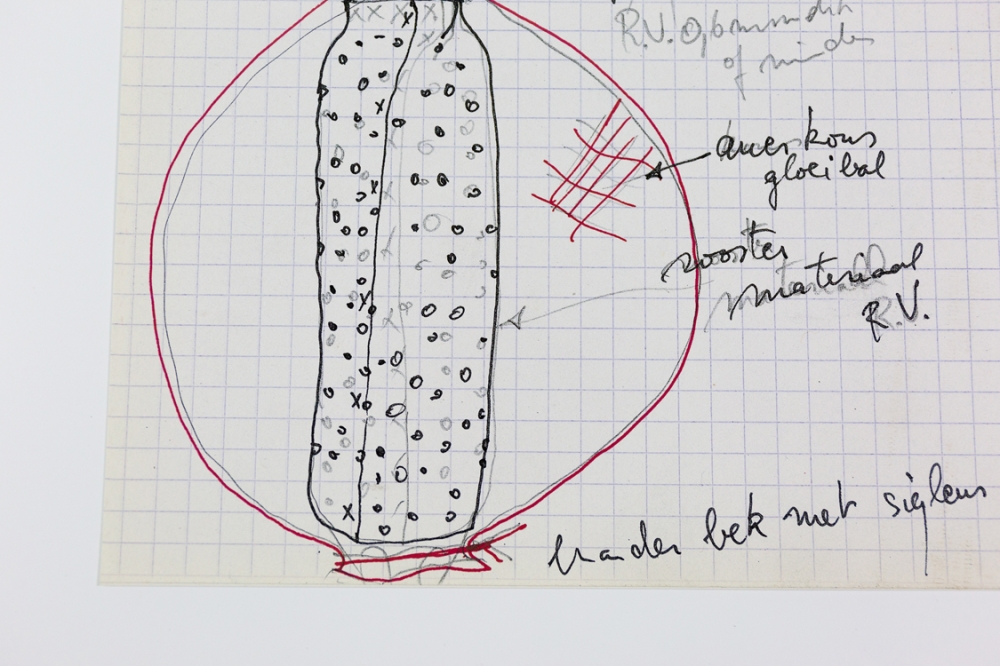 R.V. 0,6 mm
of minder
gloeibal
rooster
materiaal
R.V.
brander bek met